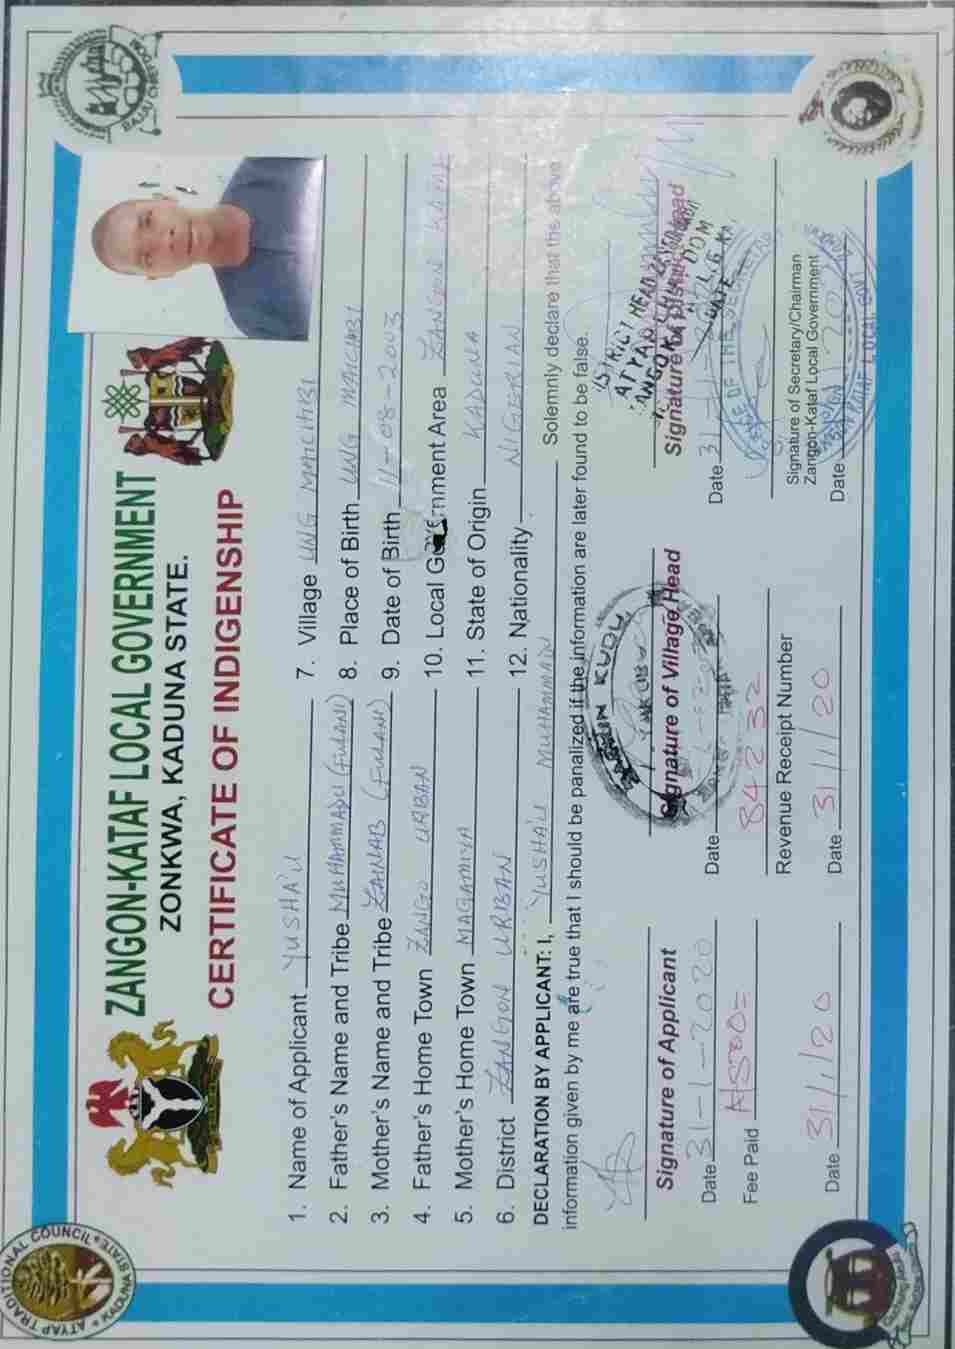 ZANGON-KATAF LOCAL GOVERNMENT
ZONKWA, KADUNA STATE.
CERTIFICATE OF INDIGENSHIP
ATYAP TRADITIONAL COUNCIL
KADUNA STATE
BAJJU CHIEFDOM
1. Name of Applicant YUSHA'U
2. Father's Name and Tribe MUHAMMADU (FULANI)
3. Mother's Name and Tribe ZAINAB (FULANI)
4. Father's Home Town ZANGO URBAN
5. Mother's Home Town MAGAMIYA
6. District ZANGON URBAN
7. Village UNG MAICIBI
8. Place of Birth UNG MAICIBI
9. Date of Birth 11-08-2003
10. Local Government Area ZANGON KATAF
11. State of Origin KADUNA
12. Nationality NIGERIAN
DECLARATION BY APPLICANT: I, YUSHA'U MUHAMMADU Solemnly declare that the above
information given by me are true that I should be panalized if the information are later found to be false.
Signature of Applicant
Date 31-1-2020
Fee Paid N500=
Date 31/1/20
KUDU
Signature of Village Head
Date
84232
Revenue Receipt Number
Date 31/1/20
DISTRICT HEAD
ATYAP
Signature of District Head
DATE
Date 31
OFFICE OF THE SECRETARY
Signature of Secretary/Chairman
Zangon-Kataf Local Government
Date
KATAF LOCAL GOVT